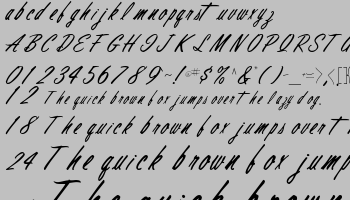 abcdefghijklmnopqrst uvwxyz
ABCDEFGHIJKLMNOPQRSTU
0123456789~!@#$%^&()-_=;,<[
12 The quick brown fox jumps over the lazy dog.
18 The quick brown fox jumps over t
24 The quick brown fox jump
The quick brown